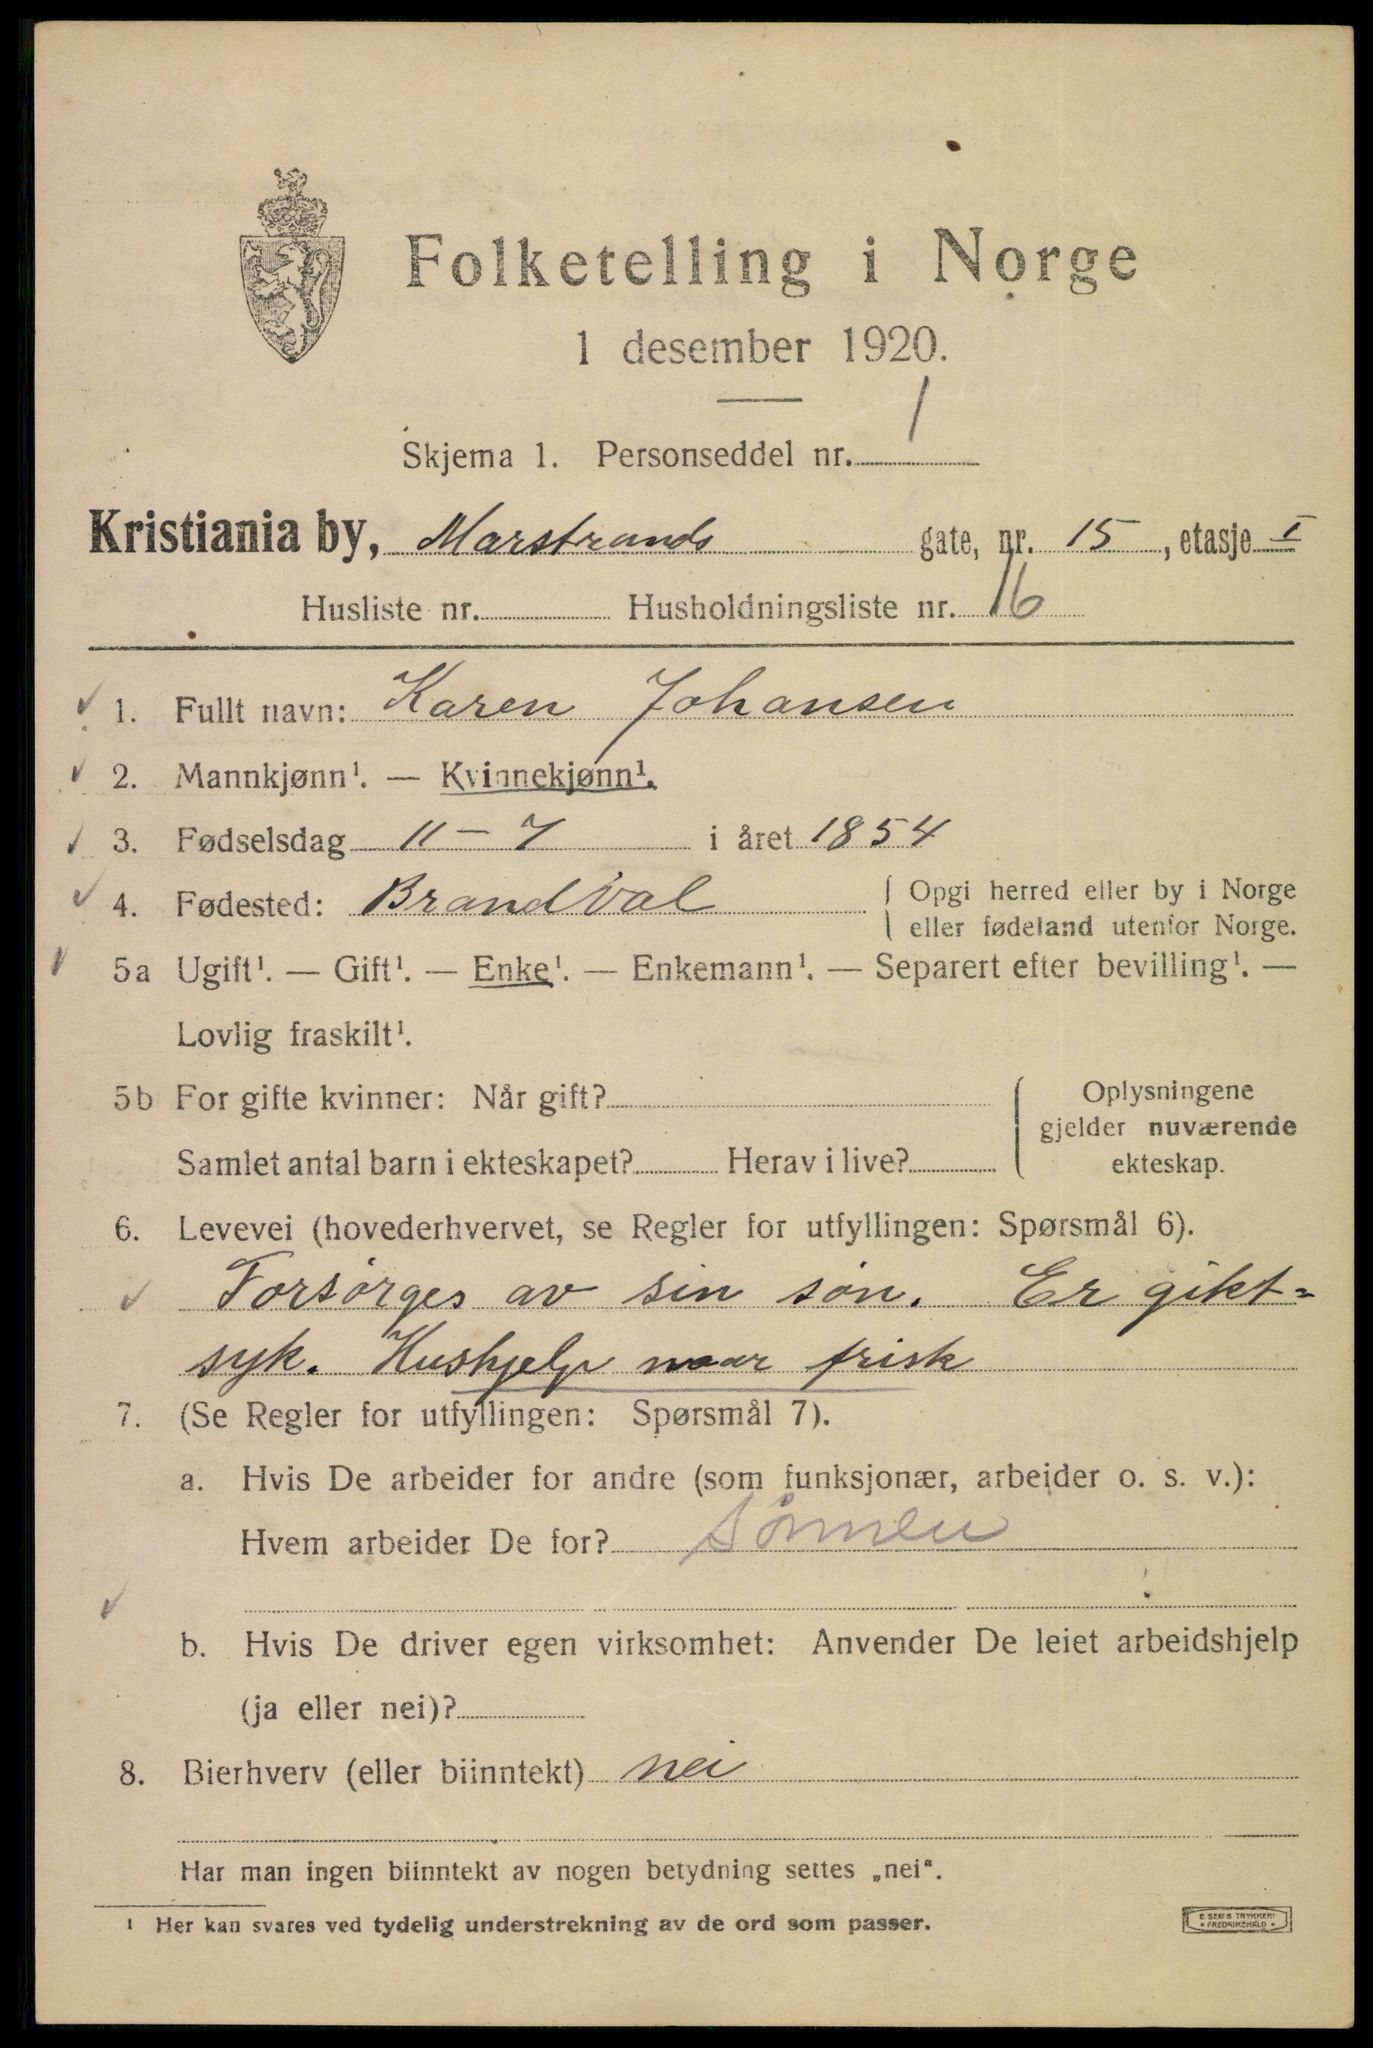 Folketelling i Norge
1 desember 1920.
Skjema 1. Personseddel nr. 1
Kristiania by, Marstrands gate, nr. 15, etasje I
Husliste nr. Husholdningsliste nr. 16
1. Fullt navn: Karen Johansen
2. Mannkjønn¹. — Kvinnekjønn¹.
3. Fødselsdag 11-7 i året 1854
4. Fødested: Brandval { Opgi herred eller by i Norge
eller fødeland utenfor Norge.
5a Ugift¹. — Gift¹. — Enke¹. — Enkemann¹. — Separert efter bevilling¹. —
Lovlig fraskilt¹.
5b For gifte kvinner: Når gift?
Samlet antal barn i ekteskapet? Herav i live?
Oplysningene
gjelder nuværende
ekteskap.
6. Levevei (hovederhvervet, se Regler for utfyllingen: Spørsmål 6).
Forsørges av sin søn. Er gikt=
syk. Hushjelp naar frisk
7. (Se Regler for utfyllingen: Spørsmål 7).
a. Hvis De arbeider for andre (som funksjonær, arbeider o. s. v.):
Hvem arbeider De for? Sønnen
b. Hvis De driver egen virksomhet: Anvender De leiet arbeidshjelp
(ja eller nei)?
8. Bierhverv (eller biinntekt) nei
Har man ingen biinntekt av nogen betydning settes „nei“.
¹ Her kan svares ved tydelig understrekning av de ord som passer.
E SEM'S TRYKKERI
• FREDRIKSHALD •